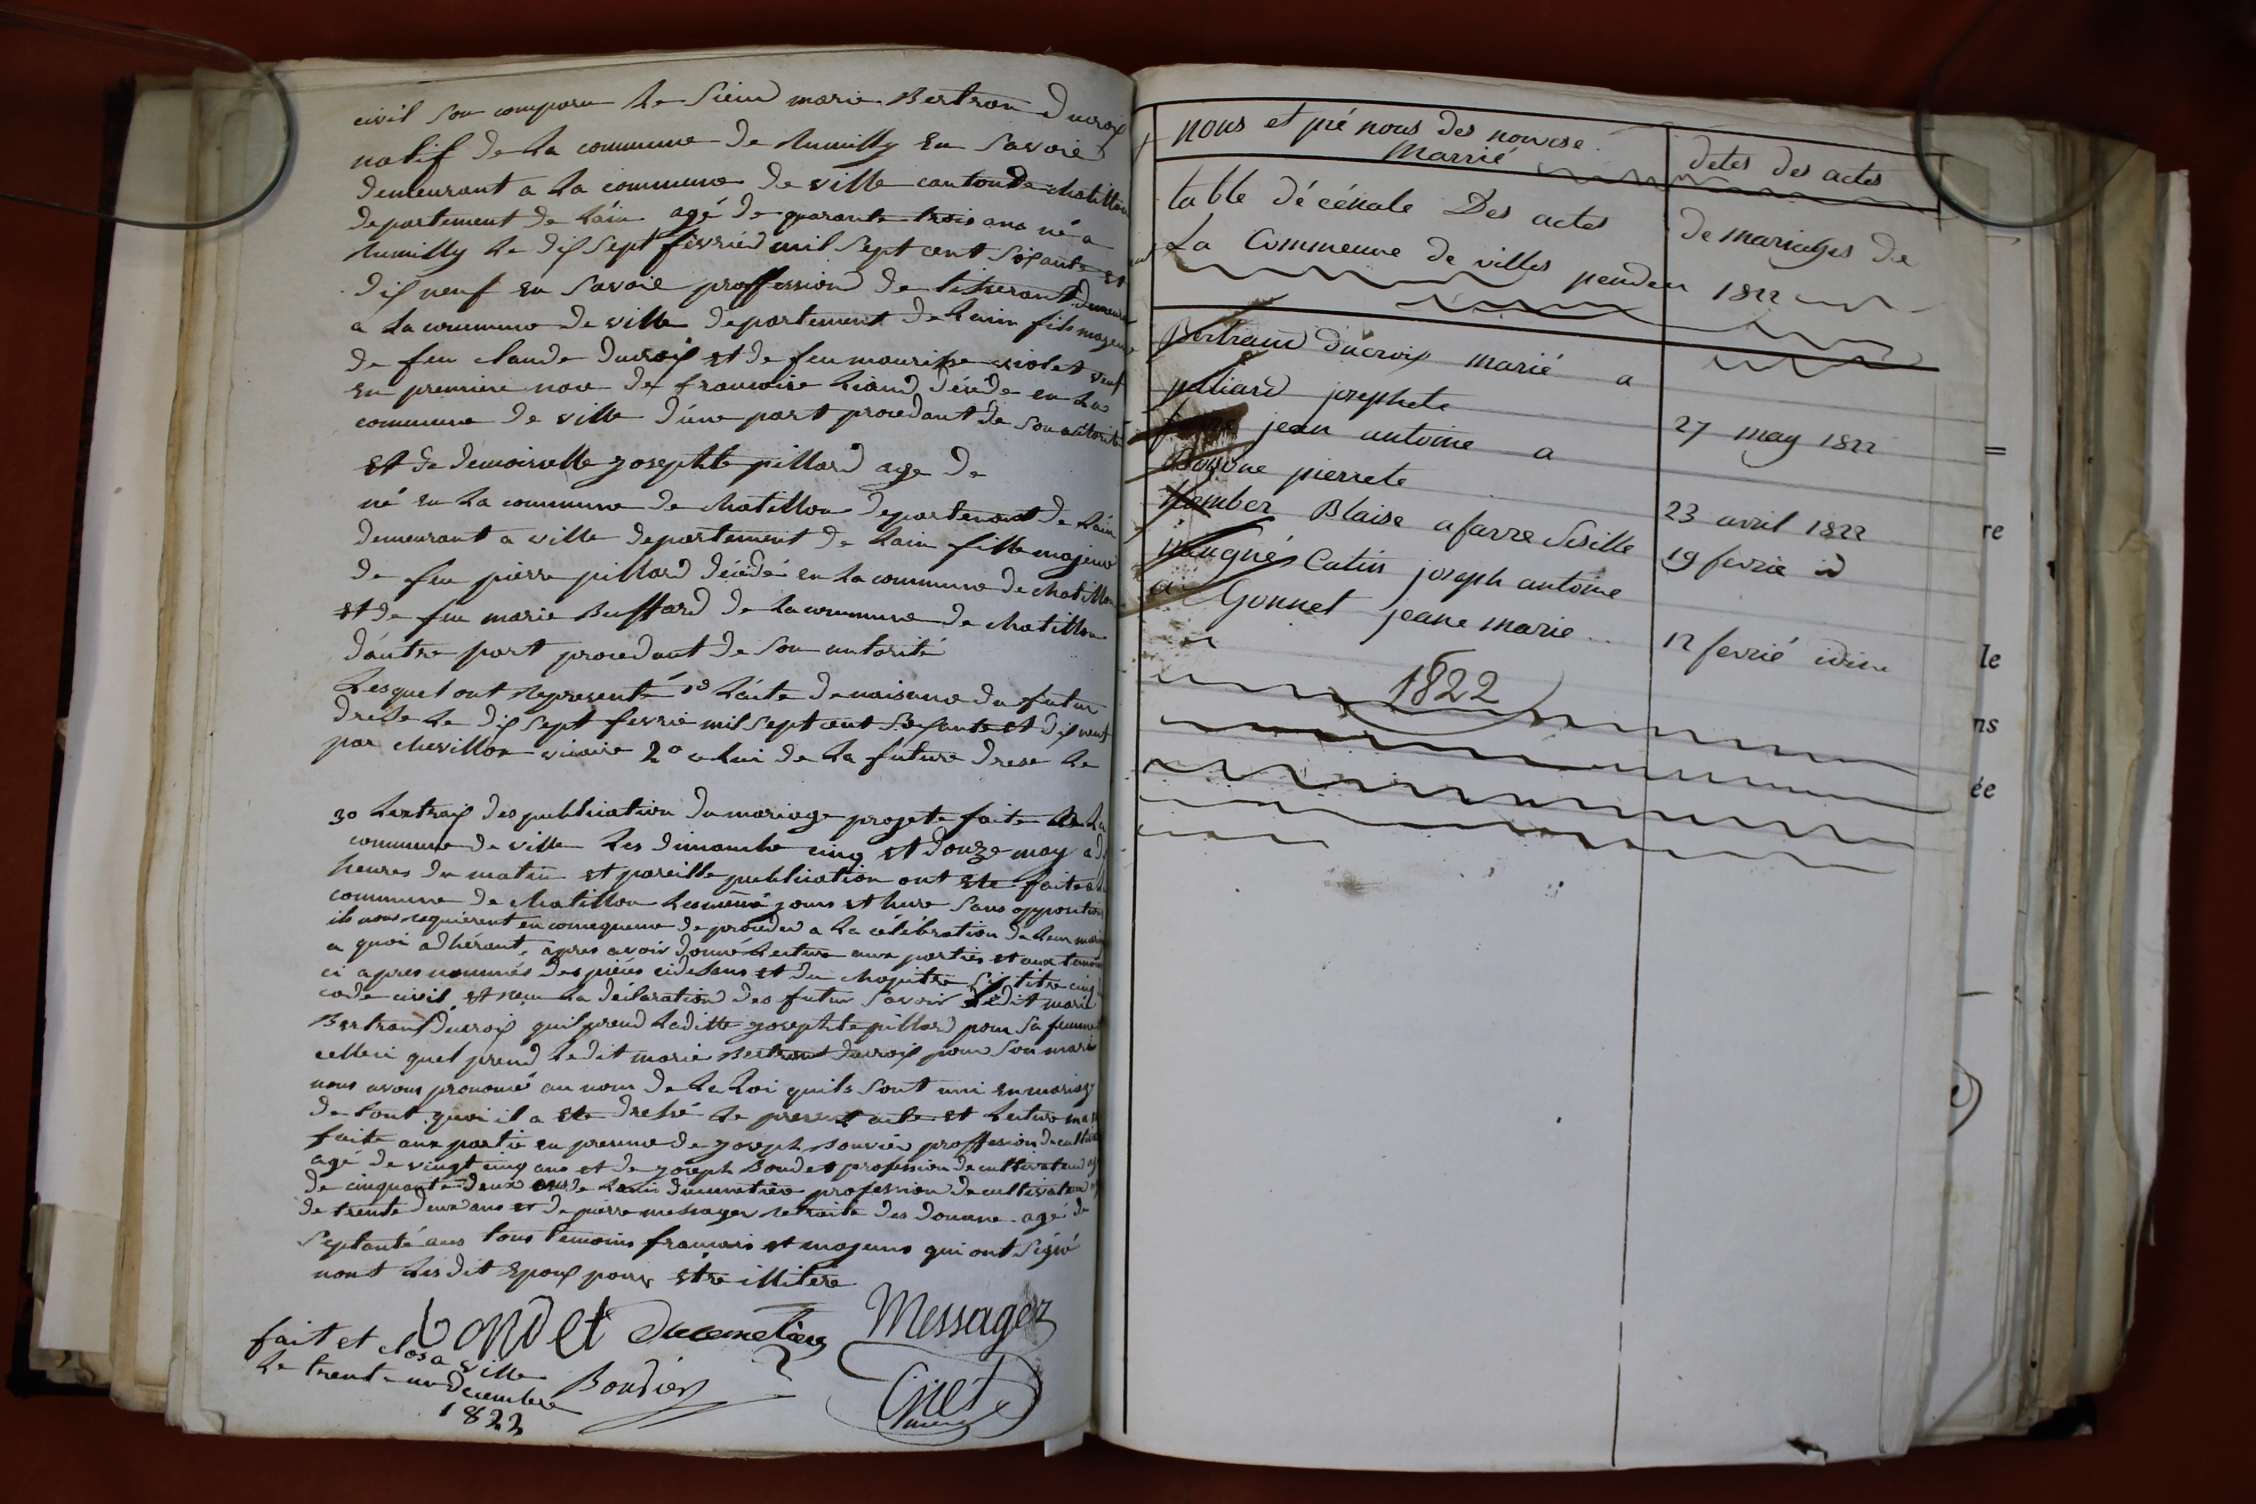 civil son comparu le Sieur marie Bertran Ducroix
natif de la commune de Rumilly en Savoie
demeurant a la commune de ville canton de chatillon
departement de lain agé de quarante trois ans né a
Rumilly le dix sept février mil sept cent soixante et
dix neuf en Savoie proffession de titserant demeurant
a la commune de ville departement de lain fils majeur
de feu claude ducroix et de feu maurise violet veuf
en premiere noce de francoise liand décéde en la
commune de ville d'une part procedant de son autorité
et de demoiselle josephte pillard age de
né en la commune de chatillon departement de lain
demeurant a ville departement de lain fille majeure
de feu pierre pillard décédé en la commune de chatillon
et de feu marie Buffard de la commune de chatillon
d'autre part procedant de son autorité
Lesquel ont representé 1o l'acte de naisance du futur
dresse le dix sept fevrie mil sept cent soixante et dix neuf
par chevillon vicaire 2o celui de la future drese le
3o l'extrais des publication du mariage projete faite de la
commune de ville les dimanche cinq et douze may a dix
heures du matin et pareille publication ont ete faites
commune de chatillon les meme jours et hure sans opposition
ils nous requierent en consequence de proceder a la célébration de leur mariage
a quoi adhérant, apres avoir donné lecture aux parties et aux temoins
ci apres nommés des pieces cidesus et du chapitre six titre cinq
code civil et recu la déclaration des futur savoir ledit marie
Bertrans ducroix quil prend laditte josephte pillard pour sa femme
celleci quel prend ledit marie Bertrant ducroix pour son mari
nous avons prononcé au nom de la loi quils sont uni en mariage
de tout quoi il a ete dressé le present acte et lecture
faite aux partie en presence de joseph bouvier proffesion de cultiv
agé de vingt cinq ans et de joseph bondet profession de cultivateur
de cinquante deux ans de lain ducumetiere profession de cultivateur
de trente deux ans et de pierre messager retraite des douane agé de
septante ans tous temoins francais et majeurs qui ont signé
nont lesdit epoux pour etre illitere
bondet Ducumetiere Messager
fait et clos a ville
le trente un decembre Boudier
1822 Cinet
maire
nous et pré nous des nouvese detes des actes
Marrié
table décénale Des actes de mariages de
La Commeune de villes penden 1822
Bertrand ducroix marié a
pilliard josephete 27 may 1822
jean antoine a
pierrete 23 avril 1822
humber Blaise a farre Sisille 19 fevrie id
Catin joseph antoine
a Gonnet jeane marie 12 fevrié idem
1822
re
le
ns
ée